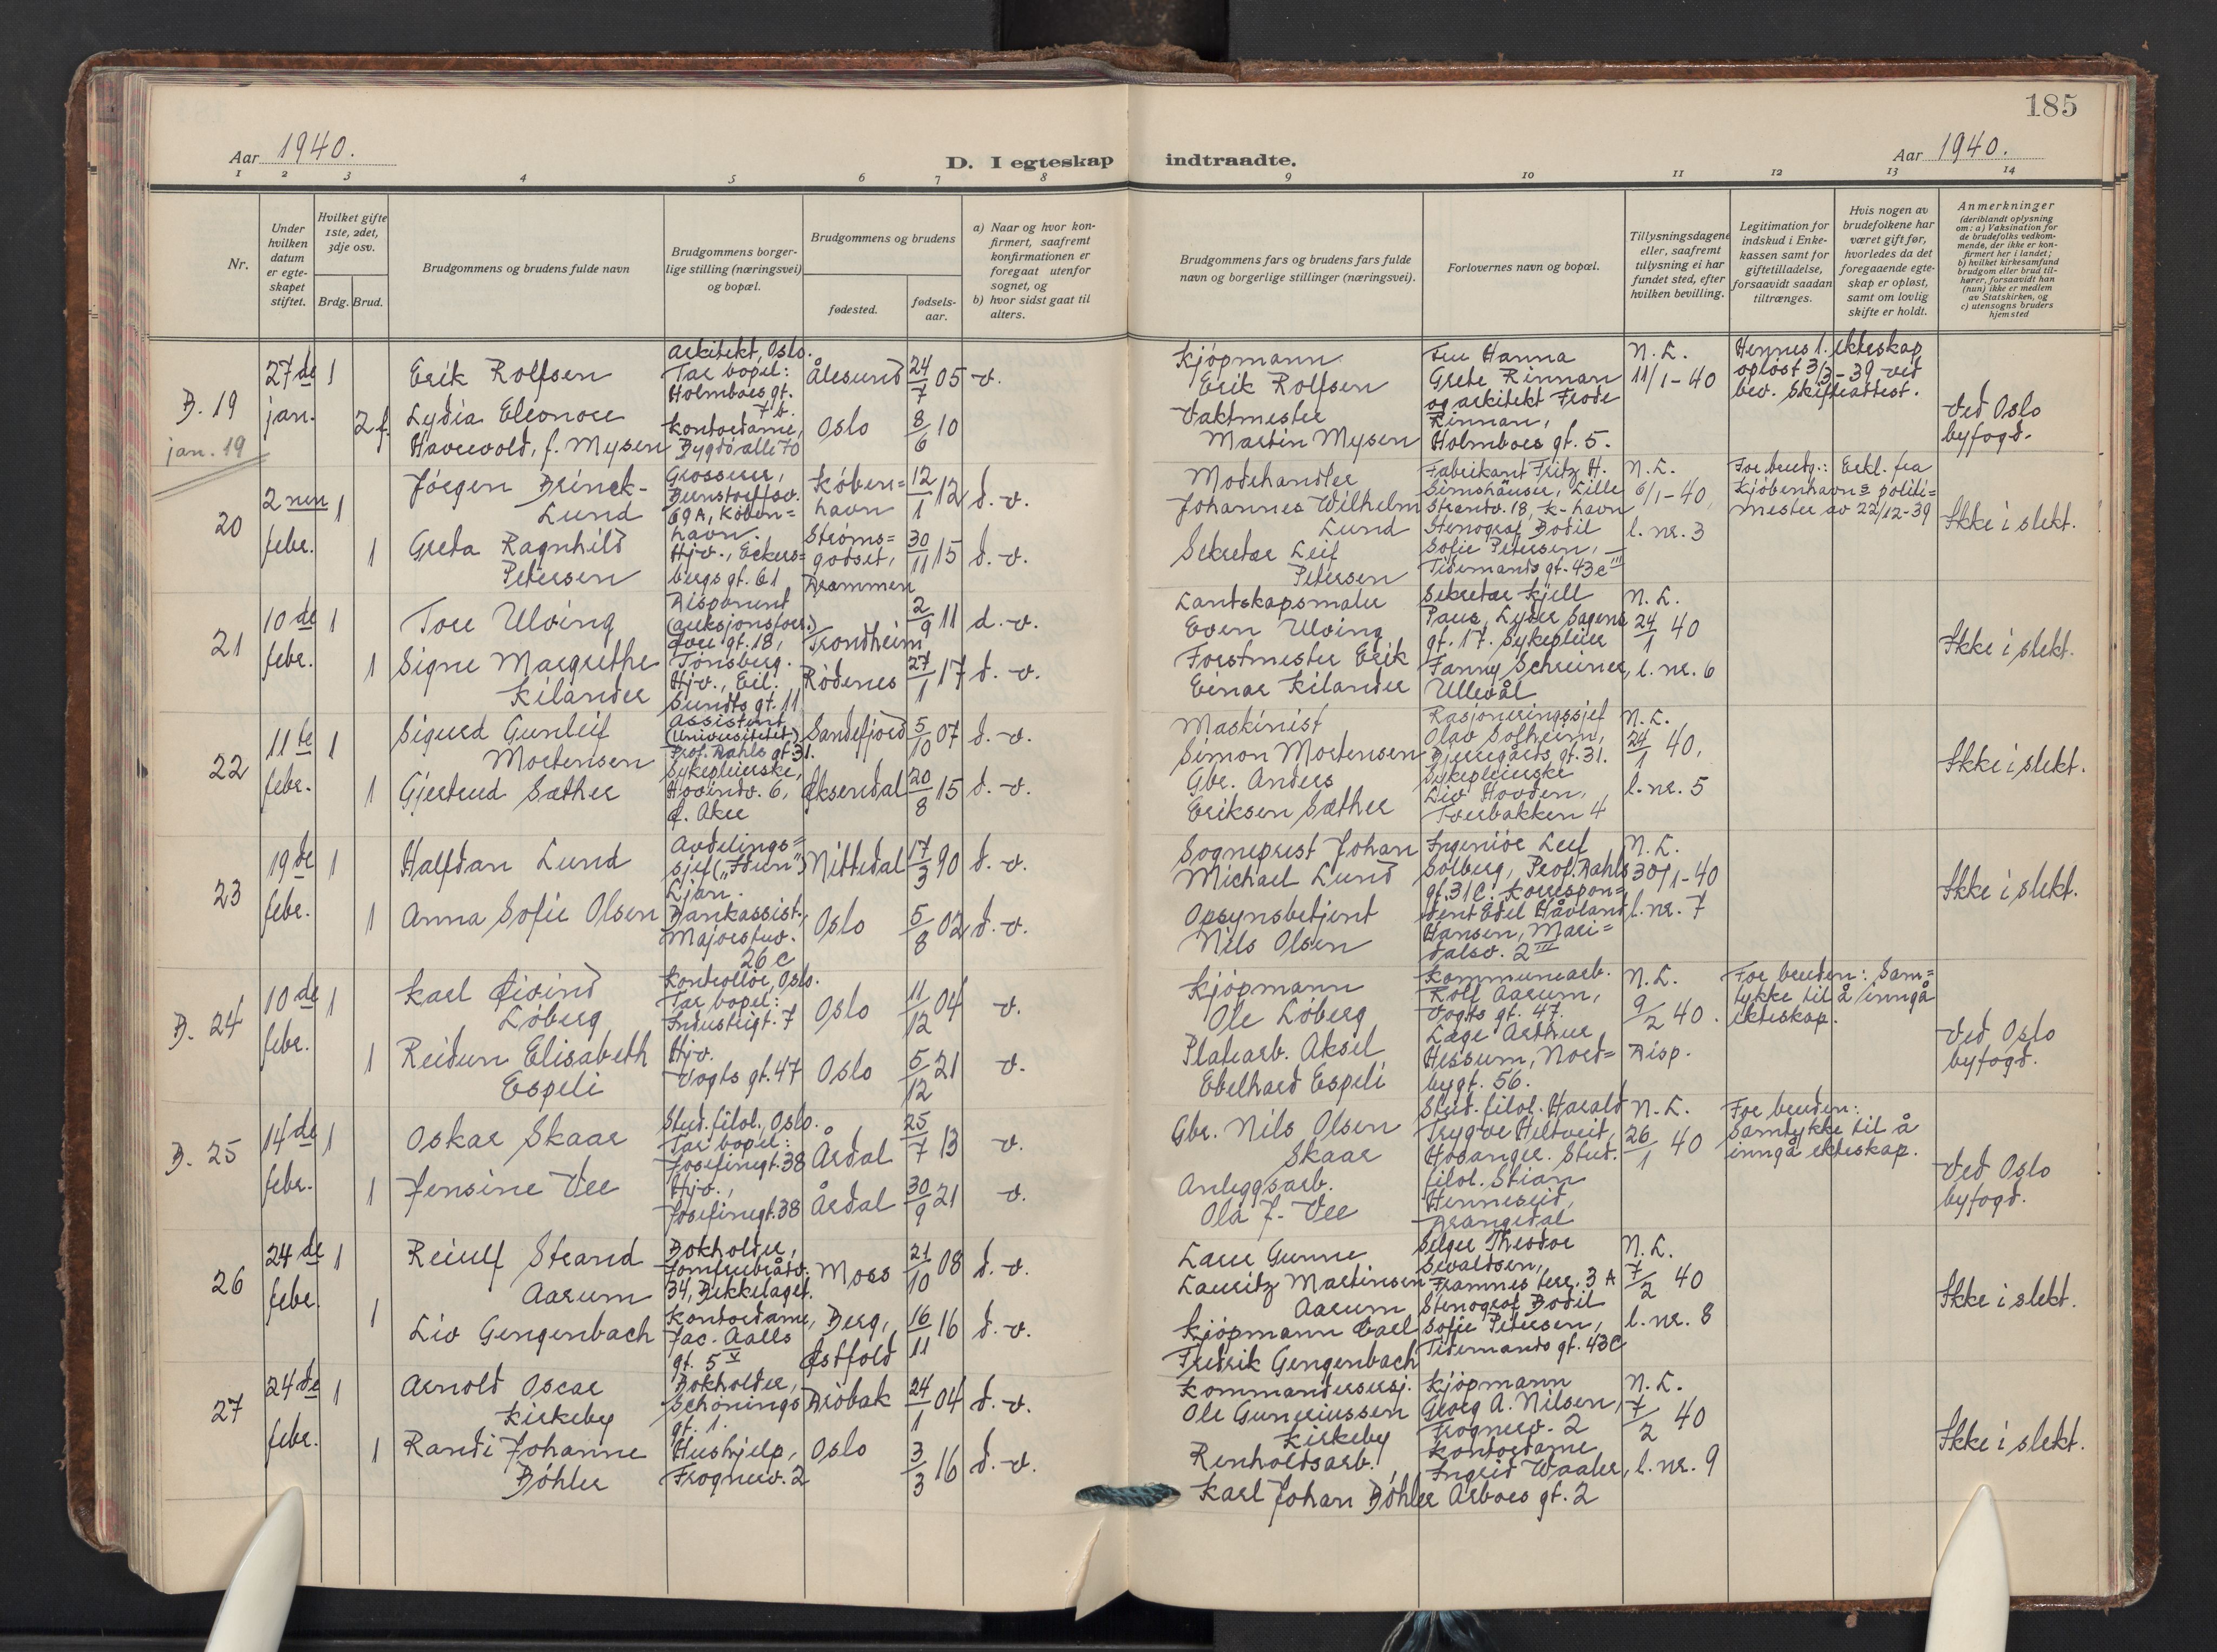 185
Aar 1940.
D. I egteskap indtraadte.
Aar 1940.
1 2 3 4 5 6 7 8 9 10 11 12 13 14
Nr.
Under hvilken datum er egte-skapet stiftet.
Hvilket gifte 1ste, 2det, 3dje osv.
Brdg. Brud.
Brudgommens og brudens fulde navn
Brudgommens borger-
lige stilling (næringsvei)
og bopæl.
Brudgommens og brudens
fødested.
fødsels-
aar.
a) Naar og hvor kon-
firmert, saafremt
konfirmationen er
foregaat utenfor
sognet, og
b) hvor sidst gaat til
alters.
Brudgommens fars og brudens fars fulde
navn og borgerlige stillinger (næringsvei).
Forlovernes navn og bopæl.
Tillysningsdagene
eller, saafremt
tillysning ei har
fundet sted, efter
hvilken bevilling.
Legitimation for
indskud i Enke-
kassen samt for
giftetilladelse,
forsaavidt saadan
tiltrænges.
Hvis nogen av
brudefolkene har
været gift før,
hvorledes da det
foregaaende egte-
skap er opløst,
samt om lovlig
skifte er holdt.
Anmerkninger
(deriblandt oplysning
om: a) Vaksination for
de brudefolks vedkom-
mende, der ikke er kon-
firmert her i landet;
b) hvilket kirkesamfund
brudgom eller brud til-
hører, forsaavidt han
(hun) ikke er medlem
av Statskirken, og
c) utensogns bruders
hjemsted
B. 19
jan. 19
27de
jan.
1
2 f.
Erik Rolfsen
Lydia Eleonore
Havrevold, f. Mysen
Arkitekt, Oslo.
Tar bopel:
Holmboes gt.
7b.
Kontordame,
Bygdø alle 70
Ålesund
Oslo
24/7 05
8/6 10
v.
Kjøpmann
Erik Rolfsen
Vaktmester
Martin Mysen
Fru Hanna
Grete Rinnan
og arkitekt Frode
Rinnan,
Holmboes gt. 5.
N. L.
11/1-40
Hennes 1. ekteskap
opløst 3/3-39 ved
bev. Skifteattest.
Ved Oslo
byfogd.
20
2nen
febr.
1
1
Jørgen Brinck-
Lund
Greta Ragnhild
Petersen
Grosserer,
Bernstorffsv.
69A, Køben=
havn.
Hjv., Eckers=
bergs gt. 61
Køben=
havn
Strøms=
godset,
Drammen
12/1 12
30/11 15
d. v.
d. v.
Modehandler
Johannes Wilhelm
Lund
Sekretær Leif
Petersen
Fabrikant Fritz H.
Simshäuser, Lille
Strandv. 18, K-havn
Stenograf Bodil
Sofie Petersen,
Tidemands gt. 43c III
N. L.
6/1-40,
l. nr. 3
For brudg.: Erkl. fra
Kjøbenhavns politi=
mester av 22/12-39
Ikke i slekt.
21
10de
febr.
1
1
Tore Ulving
Signe Margrethe
Kilander
Disponent
(auksjonsforr.)
gt. 18,
Tønsberg.
Hjv., Eil.
Sundts gt. 11
Trondheim
Rødenes
2/9 11
27/1 17
d. v.
d. v.
Lantskapsmaler
Even Ulving
Forstmester Erik
Einar Kilander
Sekretær Kjell
Paus, Lyder Sagens
gt. 17. Sykepleier
Fanny Schreiner,
Ullevål
N. L.
24/1 40
l. nr. 6
Ikke i slekt.
22
11te
febr.
1
1
Sigurd Gunleif
Mortensen
Gjertrud Sæther
Assistent
(Universitetet)
Prof. Dahls gt. 31.
Sykepleierske,
Hovindv. 6,
Ø. Aker
Sandefjord
Øksendal
5/10 07
20/8 15
d. v.
d. v.
Maskinist
Simon Mortensen
Gbr. Anders
Eriksen Sæther
Rasjoneringssjef
Olav Solheim,
Bjerregårds gt. 31.
Sykepleierske
Liv Hovden,
Tverbakken 4
N. L.
24/1 40,
l. nr. 5
Ikke i slekt.
23
19de
febr.
1
1
Halfdan Lund
Anna Sofie Olsen
Avdelings=
sjef („Idun")
Ljan.
Bankassist.,
Majorstuv.
26 C
Nittedal
Oslo
17/3 90
5/8 02
d. v.
d. v.
Sogneprest Johan
Michael Lund
Opsynsbetjent
Nils Olsen
Ingeniør Leif
Solberg, Prof. Dahls
gt. 31C. Korrespon=
dent Edel Håvland
Hansen, Mari=
dalsv. 2 III
N. L.
30/1-40
l. nr. 7
Ikke i slekt.
B. 24
10de
febr.
1
1
Karl Øivind
Løberg
Reidun Elisabeth
Espeli
Kontrollør, Oslo.
Tar bopel:
Industrigt. 7
Hjv.
Vogts gt. 47
Oslo
Oslo
11/12 04
5/12 21
v.
v.
Kjøpmann
Ole Løberg
Platearb. Aksel
Ebelhard Espeli
Kommunearb.
Rolf Aarum,
Vogts gt. 47.
Læge Arthur
Hessum, Nord=
bygt. 56.
N. L.
9/2 40.
Disp.
For bruden: Sam=
tykke til å inngå
ekteskap.
Ved Oslo
byfogd.
B. 25
14de
febr.
1
1
Oskar Skaar
Jensine Vee
Stud. filol., Oslo.
Tar bopel:
Josefinegt. 38
Hjv.,
Josefinegt. 38
Årdal
Årdal
25/7 13
30/9 21
v.
v.
Gbr. Nils Olsen
Skaar
Anleggsarb.
Ola J. Vee
Stud. filol. Harald
Trygve Heltveit,
Hosanger. Stud.
filol. Stian
Henneseid,
Drangedal
N. L.
26/1 40
For bruden:
Samtykke til å
inngå ekteskap.
Ved Oslo
byfogd.
26
24de
febr.
1
1
Reiulf Strand
Aarum
Liv Gengenbach
Bokholder,
Jomfrubråtv.
34, Bekkelaget.
Kontordame,
Jac. Aalls
gt. 5 V
Moss
Berg,
Østfold
21/10 08
16/11 16
d. v.
d. v.
Lærer Gunne
Lauritz Martinsen
Aarum
Kjøpmann Carl
Fredrik Gengenbach
Selger Theodor
Sivaldsen,
Framnes terr. 3 A
Stenograf Bodil
Sofie Petersen,
Tidemands gt. 43C
N. L.
7/2 40
l. nr. 8
Ikke i slekt.
27
24de
febr.
1
1
Arnold Oscar
Kirkeby
Randi Johanne
Bøhler
Bokholder,
Schønings
gt. 1.
Hushjelp,
Frognerv. 2
Drøbak
Oslo
24/1 04
3/3 16
d. v.
d. v.
Kommandersersj.
Ole Gunerius­sen
Kirkeby
Renholdsarb.
Karl Johan Bøhler
Kjøpmann
Georg A. Nilsen,
Frognerv. 2
Kontordame
Ingrid Waaler,
Arboes gt. 2
N. L.
7/2 40
l. nr. 9
Ikke i slekt.